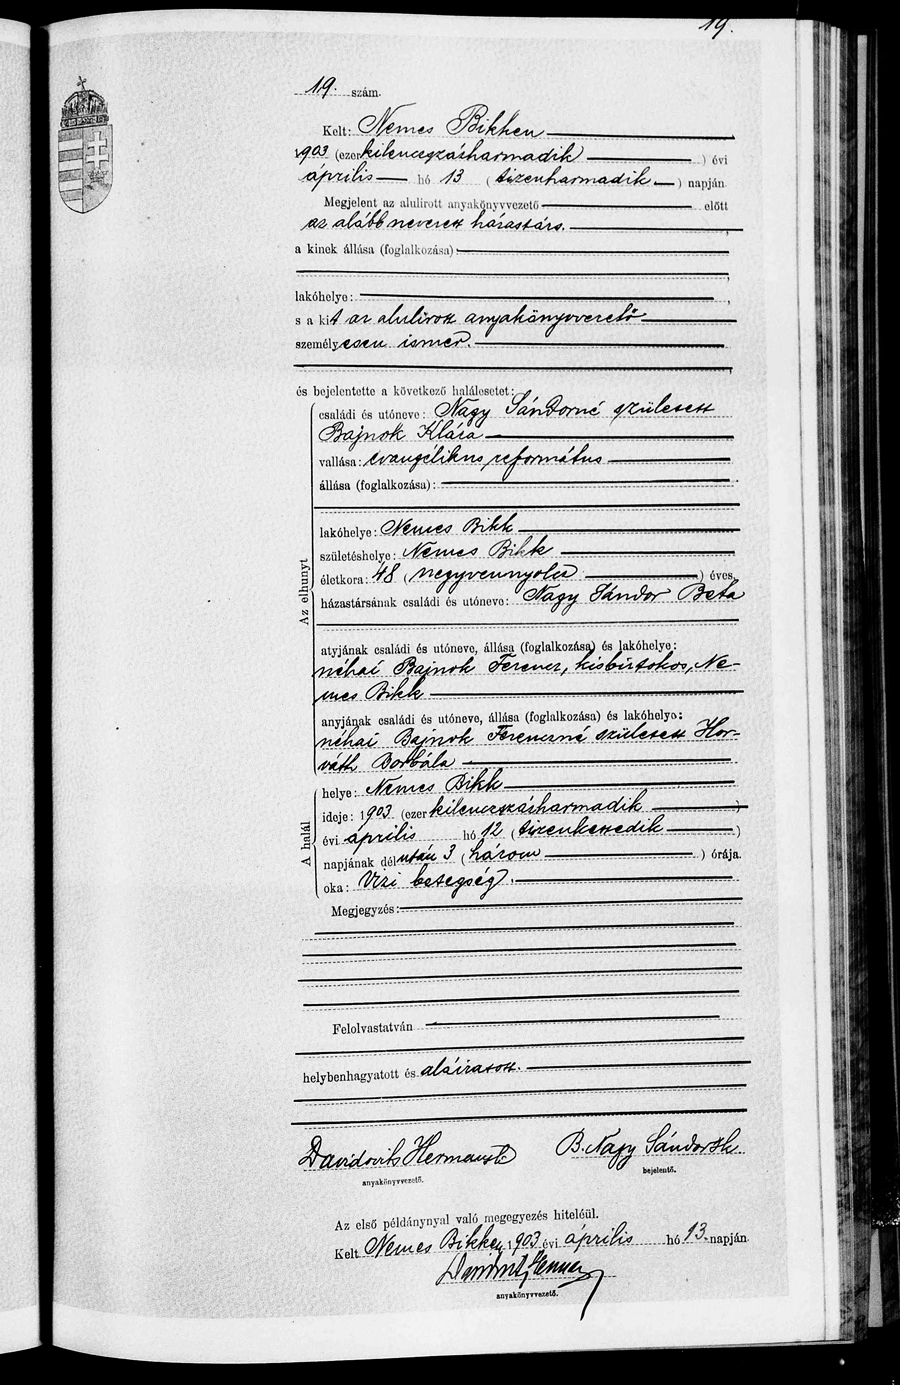 19.
19. szám.
Kelt: Nemes Bikken
1903 (ezerkilenczszázharmadik) évi
április hó 13 (tizenharmadik) napján
Megjelent az alulirott anyakönyvvezető előtt
az alább nevezett házastárs.
a kinek állása (foglalkozása):
lakóhelye:
s a kit az alulirott anyakönyvvezető
személyesen ismer.
és bejelentette a következő halálesetet:
Az elhunyt
családi és utóneve: Nagy Sándorné született
Bajnok Klára
vallása: evangélikus református
állása (foglalkozása):
lakóhelye: Nemes Bikk
születéshelye: Nemes Bikk
életkora: 48 (negyvennyolcz) éves,
házastársának családi és utóneve: Nagy Sándor Béta
atyjának családi és utóneve, állása (foglalkozása) és lakóhelye:
néhai Bajnok Ferencz, kisbirtokos, Ne-
mes Bikk
anyjának családi és utóneve, állása (foglalkozása) és lakóhelye:
néhai Bajnok Ferenczné született Hor-
váth Borbála
A halál
helye: Nemes Bikk
ideje: 1903 (ezerkilenczszázharmadik)
évi április hó 12 (tizenkettedik)
napjának délután 3 (három) órája.
oka: Vizi betegség.
Megjegyzés:
Felolvastatván
helybenhagyatott és aláiratott.
Davidovits Herman B. Nagy Sándor
anyakönyvvezető. bejelentő.
Az első példánynyal való megegyezés hiteléül.
Kelt Nemes Bikken, 1903 évi április hó 13. napján
anyakönyvvezető.